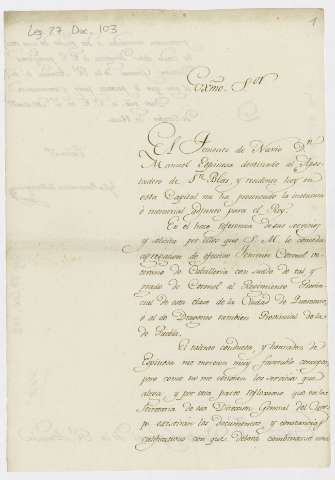 Leg. 27 Doc. 103
1
Exmo. Sor.
El Teniente de Navio Dn.
Manuel Espinosa destinado al Apos-
tadero de Sn. Blas, y residente hoy en
esta Capital me ha presentado la instancia
ó memorial adjunto para el Rey.
En él hace referencia de sus servicios
y solicita por ellos que S. M. le conceda
agregacion de efectivo Teniente Coronel ve-
terano de Caballeria con sueldo de tal y
grado de Coronel al Regimiento Provin-
cial de esta clase de la Ciudad de Queretaro,
ó al de Dragones tambien Provincial de la
de Puebla.
El talento conducta y honradez de
Espinosa me merecen muy favorable concepto;
pero como no me constan los servicios que
alega, y por otra parte reflexiono que en la
Secretaria de esa Direccion General del Cuer-
po existiran los documentos, y constancias
calificativas con que deberá combinarse esta